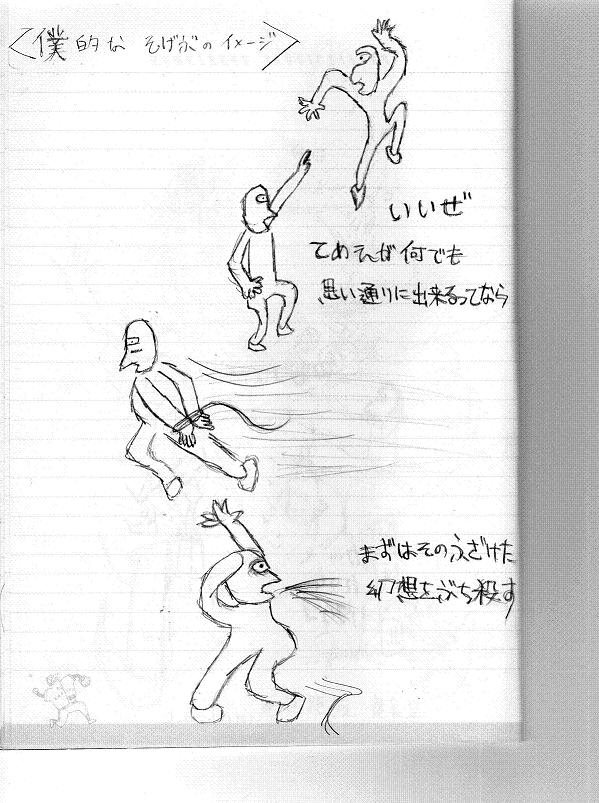 <僕的な そげぶのイメージ>
いいぜ
てめえが何でも
思い通りに出来るってなら
まずはそのふざけた
幻想をぶち殺す